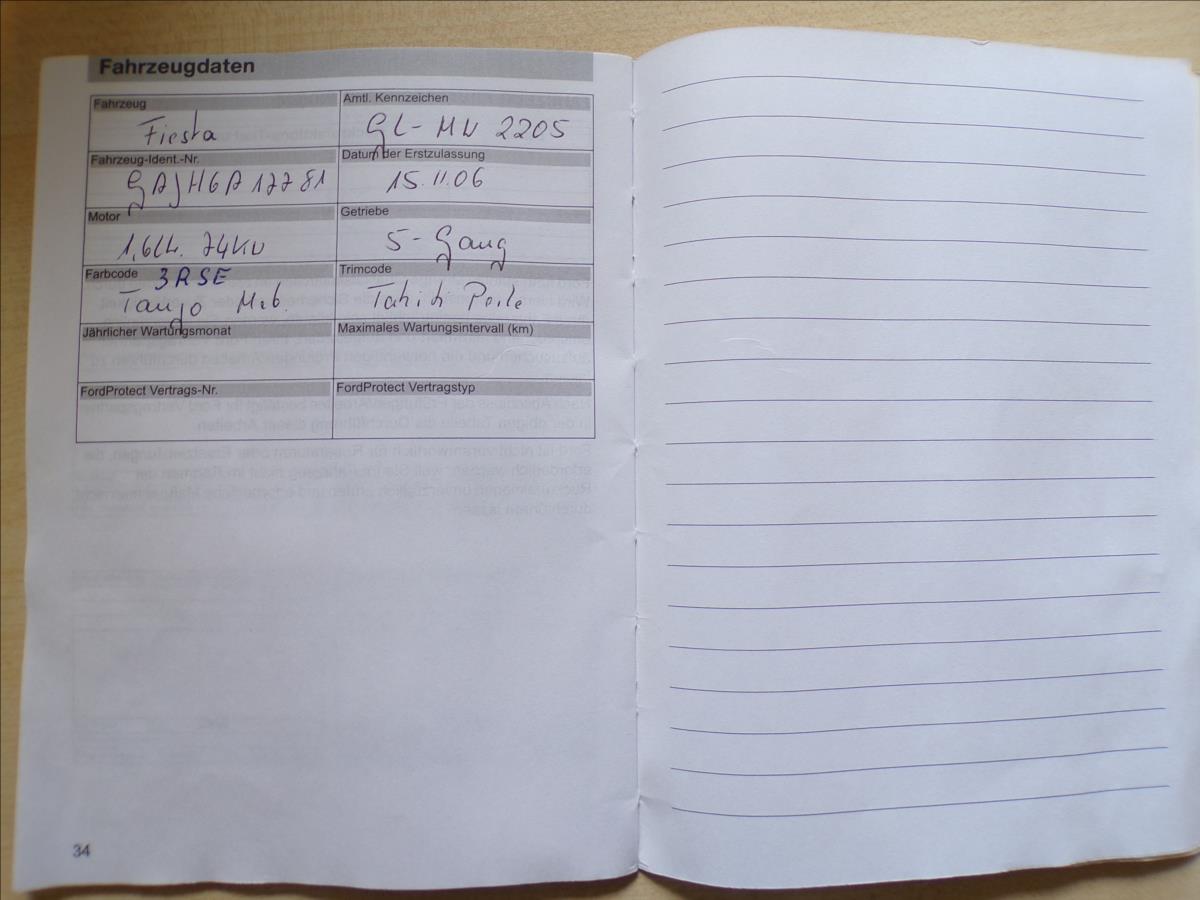 Fahrzeugdaten
Fahrzeug
Fiesta
Amtl. Kennzeichen
GL-MW 2205
Fahrzeug-Ident.-Nr.
GAJH6A17781
Datum der Erstzulassung
15.11.06
Motor
1,6Lt. 74KW
Getriebe
5-Gang
Farbcode 3RSE
Tango Met.
Trimcode
Tahiti
Jährlicher Wartungsmonat
Maximales Wartungsintervall (km)
FordProtect Vertrags-Nr.
FordProtect Vertragstyp
34